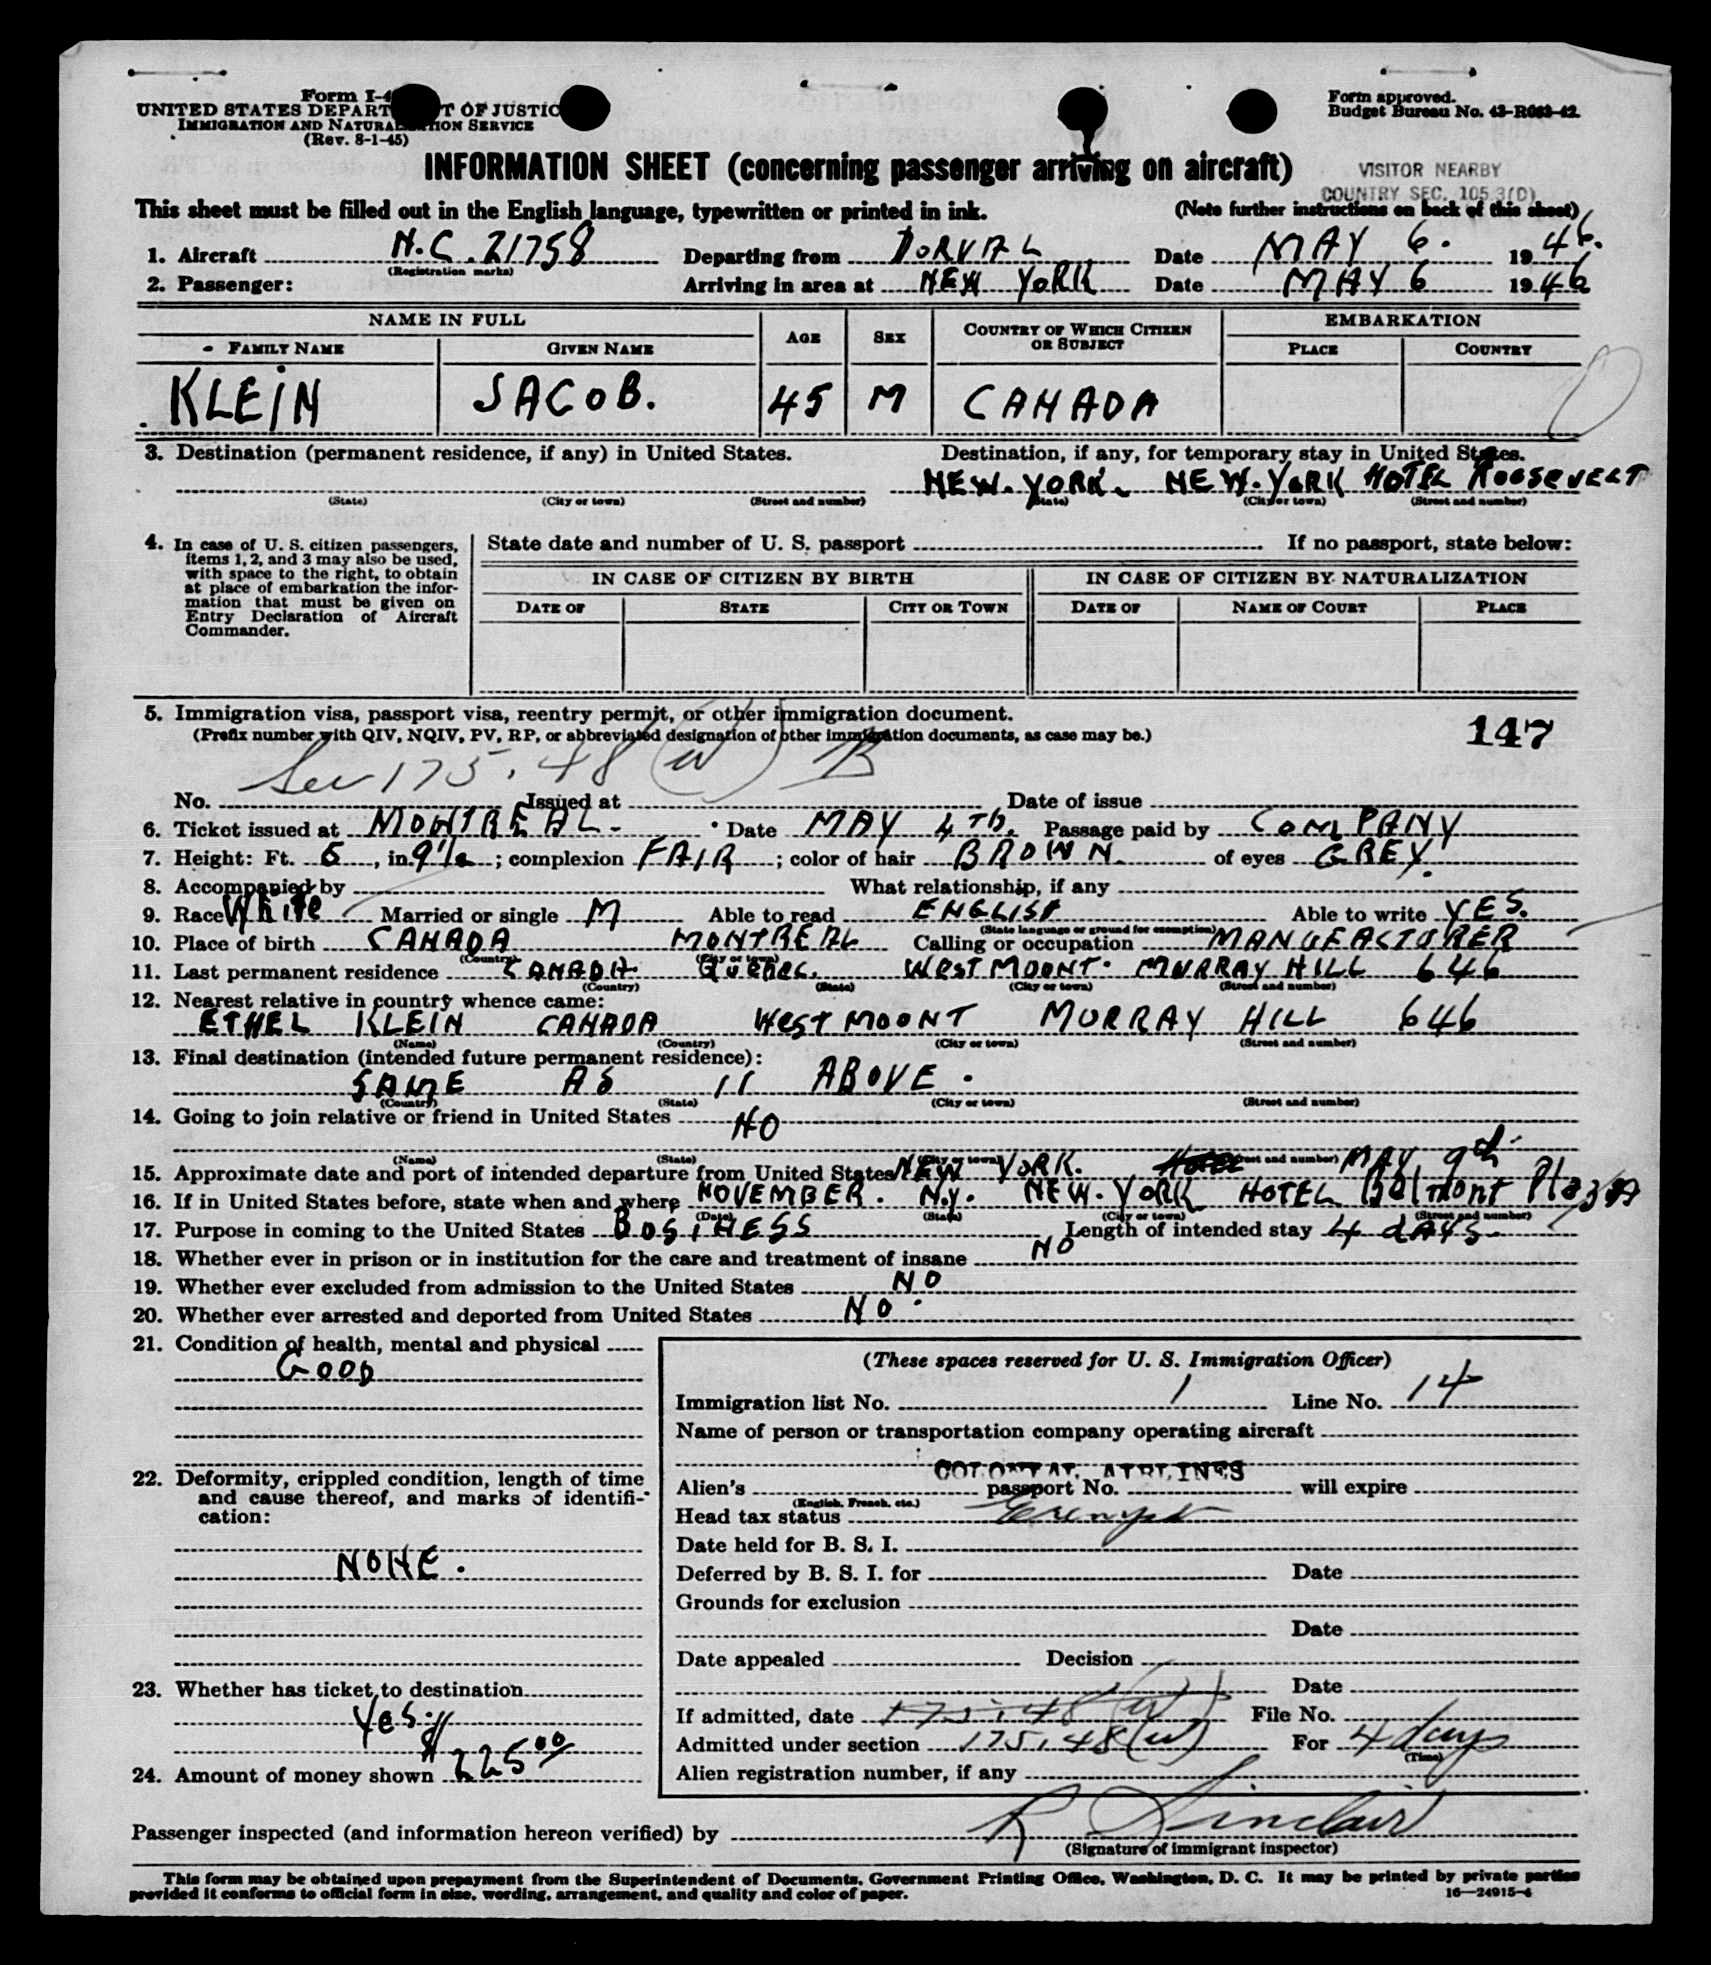 Form I-4
UNITED STATES DEPART T OF JUSTIC
IMMIGRATION AND NATURALIZATION SERVICE
(Rev. 8-1-45)
Form approved.
Budget Bureau No. 43-R083-42.
INFORMATION SHEET (concerning passenger arriving on aircraft)
VISITOR NEARBY
COUNTRY SEC. 105.3(D)
This sheet must be filled out in the English language, typewritten or printed in ink. (Note further instructions on back of this sheet)
1. Aircraft N.C. 21758 Departing from DORVAL Date MAY 6. 1946.
(Registration marks)
2. Passenger: Arriving in area at NEW YORK Date MAY 6 1946
NAME IN FULL AGE SEX COUNTRY OF WHICH CITIZEN OR SUBJECT EMBARKATION
FAMILY NAME GIVEN NAME PLACE COUNTRY
KLEIN JACOB. 45 M CANADA
3. Destination (permanent residence, if any) in United States. Destination, if any, for temporary stay in United States.
NEW.YORK. NEW.YORK HOTEL ROOSEVELT
(State) (City or town) (Street and number) (State) (City or town) (Street and number)
4. In case of U. S. citizen passengers, items 1, 2, and 3 may also be used, with space to the right, to obtain at place of embarkation the information that must be given on Entry Declaration of Aircraft Commander.
State date and number of U. S. passport If no passport, state below:
IN CASE OF CITIZEN BY BIRTH IN CASE OF CITIZEN BY NATURALIZATION
DATE OF STATE CITY OR TOWN DATE OF NAME OF COURT PLACE
5. Immigration visa, passport visa, reentry permit, or other immigration document.
(Prefix number with QIV, NQIV, PV, RP, or abbreviated designation of other immigration documents, as case may be.)
147
Sec 175.48 (w) B
No. Issued at Date of issue
6. Ticket issued at MONTREAL. Date MAY 4TH. Passage paid by COMPANY
7. Height: Ft. 5, in. 9 1/2; complexion FAIR; color of hair BROWN. of eyes GREY.
8. Accompanied by What relationship, if any
9. Race White Married or single M Able to read ENGLISH Able to write YES.
(State language or ground for exemption)
10. Place of birth CANADA MONTREAL Calling or occupation MANUFACTURER
(Country) (City or town)
11. Last permanent residence CANADA. QUEBEC. WESTMOUNT. MURRAY HILL 646
(Country) (State) (City or town) (Street and number)
12. Nearest relative in country whence came:
ETHEL KLEIN CANADA WESTMOUNT MURRAY HILL 646
(Name) (Country) (City or town) (Street and number)
13. Final destination (intended future permanent residence):
SAME AS 11 ABOVE.
(Country) (State) (City or town) (Street and number)
14. Going to join relative or friend in United States NO
(Name) (State) (City or town) (Street and number)
15. Approximate date and port of intended departure from United States NEW YORK. HOTEL MAY 9th
16. If in United States before, state when and where NOVEMBER. N.Y. NEW.YORK HOTEL Belmont Plaza
(Date) (State) (City or town) (Street and number)
17. Purpose in coming to the United States BUSINESS Length of intended stay 4 DAYS.
18. Whether ever in prison or in institution for the care and treatment of insane NO
19. Whether ever excluded from admission to the United States NO
20. Whether ever arrested and deported from United States NO.
21. Condition of health, mental and physical
GOOD
22. Deformity, crippled condition, length of time and cause thereof, and marks of identification:
NONE.
23. Whether has ticket to destination
Yes.
24. Amount of money shown $225.00
(These spaces reserved for U. S. Immigration Officer)
Immigration list No. 1 Line No. 14
Name of person or transportation company operating aircraft
COLONIAL AIRLINES
Alien's passport No. will expire
(English, French, etc.)
Head tax status Exempt
Date held for B. S. I.
Deferred by B. S. I. for Date
Grounds for exclusion
Date
Date appealed Decision
Date
If admitted, date 175.48 (w) File No.
Admitted under section 175.48 (w) For 4 days
(Time)
Alien registration number, if any
Passenger inspected (and information hereon verified) by R Sinclair
(Signature of immigrant inspector)
This form may be obtained upon prepayment from the Superintendent of Documents, Government Printing Office, Washington, D. C. It may be printed by private parties
provided it conforms to official form in size, wording, arrangement, and quality and color of paper.
16—24915-4